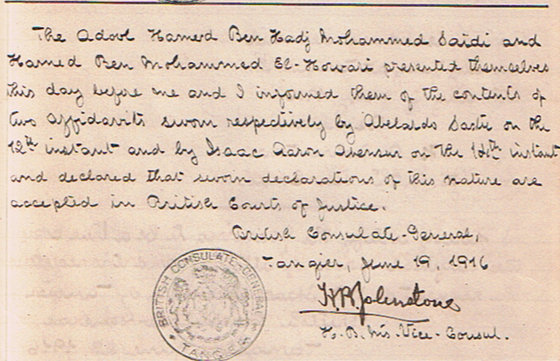 The Adool Hamed Ben Hadj Mohammed Saidi and
Hamed Ben Mohammed El-Howari presented themselves
this day before me and I informed them of the contents of
two affidavits sworn respectively by Abelardo Sastre on the
12th instant and by Isaac Aaron Abensur on the 14th instant
and declared that sworn declarations of this nature are
accepted in British Courts of Justice.
British Consulate-General,
Tangier, June 19, 1916
H. B. M's. Vice-Consul.
BRITISH CONSULATE-GENERAL
TANGIER